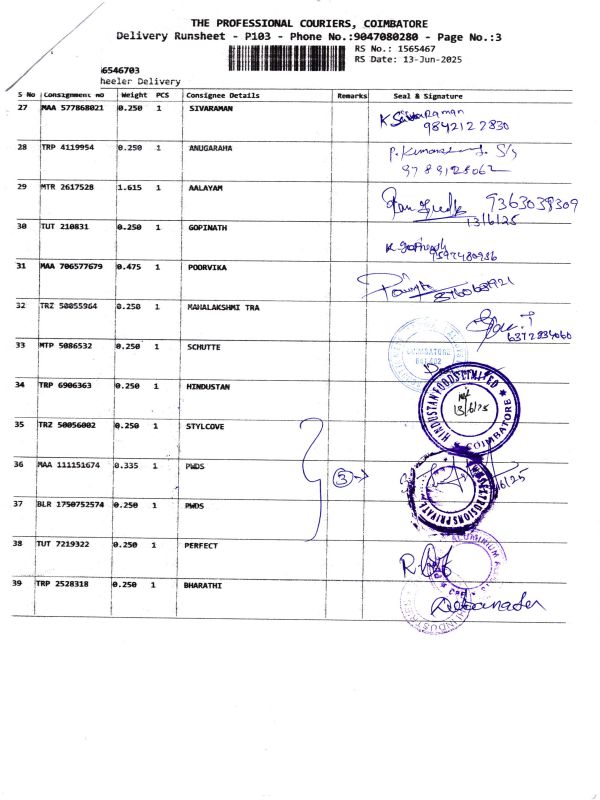 THE PROFESSIONAL COURIERS, COIMBATORE
Delivery Runsheet - P103 - Phone No.:9047080280 - Page No.:3
RS No.: 1565467
RS Date: 13-Jun-2025
6546703
heeler Delivery
S No Consignment no Weight PCS Consignee Details Remarks Seal & Signature
27 MAA 577868021 0.250 1 SIVARAMAN
9842127830
28 TRP 4119954 0.250 1 ANUGARAHA
9789128062
29 MTR 2617528 1.615 1 AALAYAM 9363039309
13/6/25
30 TUT 210831 0.250 1 GOPINATH
31 MAA 706577679 0.475 1 POORVIKA
32 TRZ 50055964 0.250 1 MAHALAKSHMI TRA
6372834060
33 MTP 5086532 0.250 1 SCHUTTE COIMBATORE
34 TRP 6906363 0.250 1 HINDUSTAN HINDUSTAN FOODS LIMITED COIMBATORE
13/6/25
35 TRZ 50056002 0.250 1 STYLCOVE
36 MAA 111151674 0.335 1 PWDS 3
37 BLR 1750752574 0.250 1 PWDS
38 TUT 7219322 0.250 1 PERFECT
39 TRP 2528318 0.250 1 BHARATHI